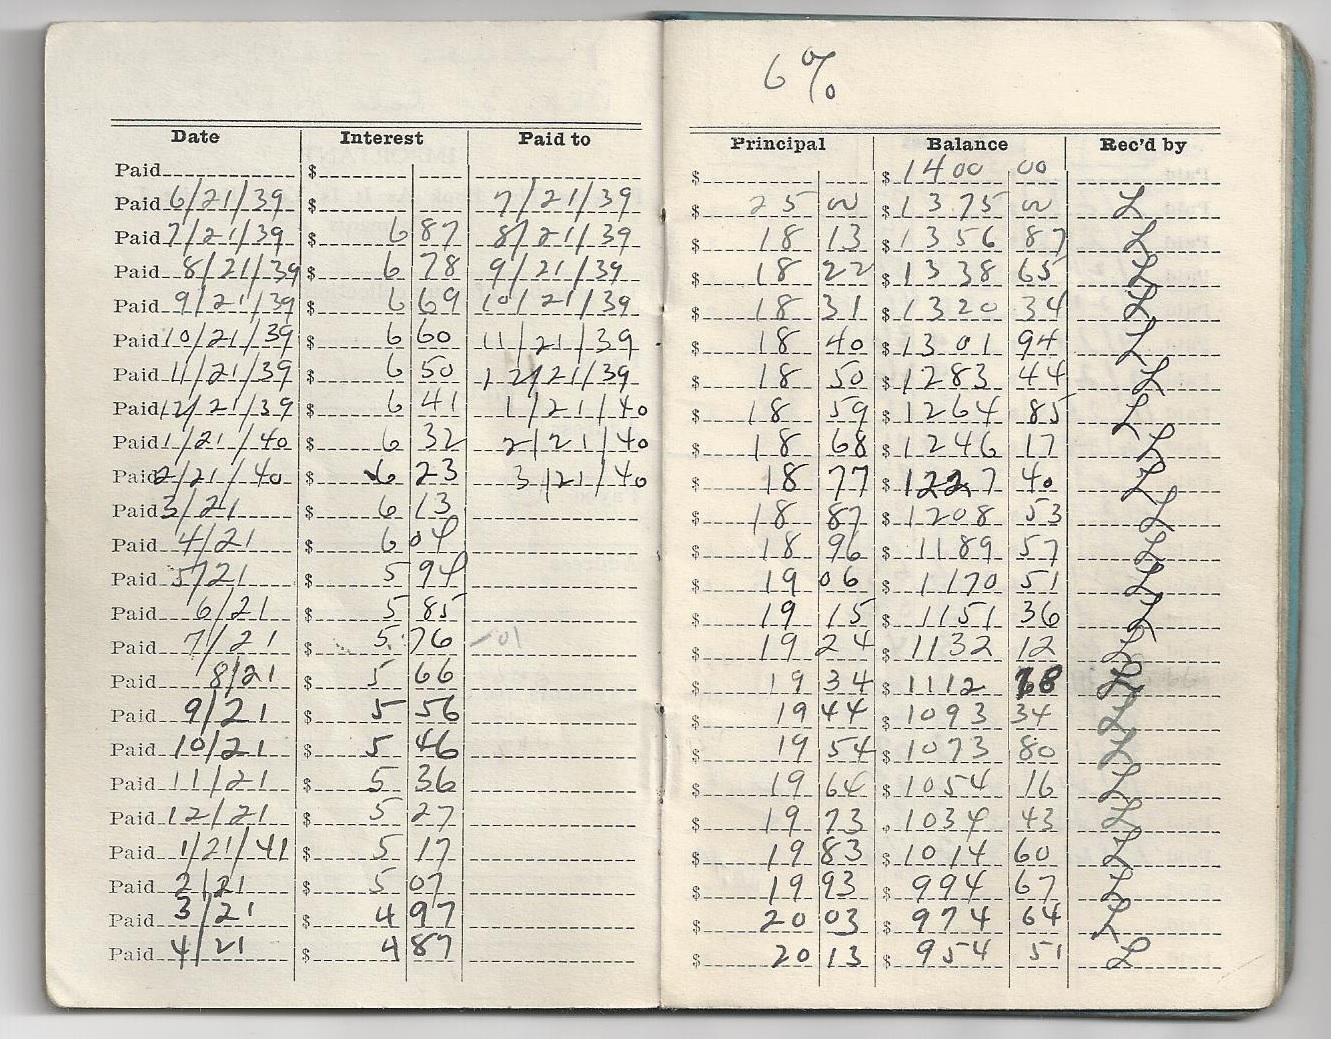 6%
Date Interest Paid to Principal Balance Rec'd by
Paid $ $ $ 1400 00
Paid 6/21/39 $ 7/21/39 $ 25 00 $ 1375 00 L
Paid 7/21/39 $ 6 87 8/21/39 $ 18 13 $ 1356 87 L
Paid 8/21/39 $ 6 78 9/21/39 $ 18 22 $ 1338 65 L
Paid 9/21/39 $ 6 69 10/21/39 $ 18 31 $ 1320 34 L
Paid 10/21/39 $ 6 60 11/21/39 $ 18 40 $ 1301 94 L
Paid 11/21/39 $ 6 50 12/21/39 $ 18 50 $ 1283 44 L
Paid 12/21/39 $ 6 41 1/21/40 $ 18 59 $ 1264 85 L
Paid 1/21/40 $ 6 32 2/21/40 $ 18 68 $ 1246 17 L
Paid 2/21/40 $ 6 23 3/21/40 $ 18 77 $ 1227 40 L
Paid 3/21 $ 6 13 $ 18 87 $ 1208 53 L
Paid 4/21 $ 6 04 $ 18 96 $ 1189 57 L
Paid 5/21 $ 5 94 $ 19 06 $ 1170 51 L
Paid 6/21 $ 5 85 $ 19 15 $ 1151 36 L
Paid 7/21 $ 5 76 $ 19 24 $ 1132 12 L
Paid 8/21 $ 5 66 $ 19 34 $ 1112 78 L
Paid 9/21 $ 5 56 $ 19 44 $ 1093 34 L
Paid 10/21 $ 5 46 $ 19 54 $ 1073 80 L
Paid 11/21 $ 5 36 $ 19 64 $ 1054 16 L
Paid 12/21 $ 5 27 $ 19 73 $ 1034 43 L
Paid 1/21/41 $ 5 17 $ 19 83 $ 1014 60 L
Paid 2/21 $ 5 07 $ 19 93 $ 994 67 L
Paid 3/21 $ 4 97 $ 20 03 $ 974 64 L
Paid 4/21 $ 4 87 $ 20 13 $ 954 51 L